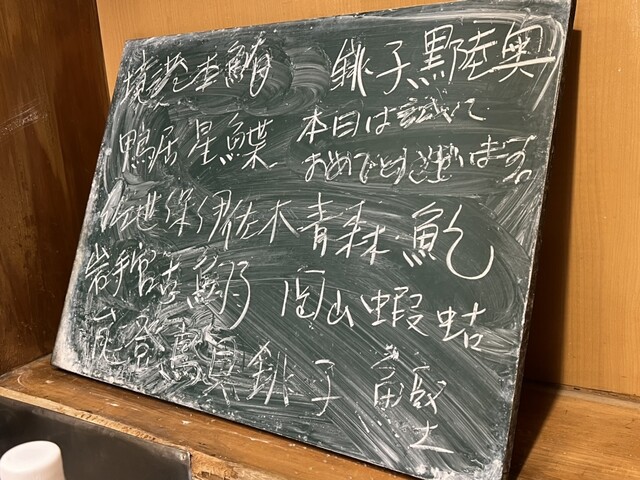 境港本鮪 銚子黒陸奥
鴨居星鰈 本日は誠に
おめでとう遊います。
佐世保伊佐木 青森 鮑
岩手宮古鰤 岡山蝦蛄
能登鳥貝 銚子